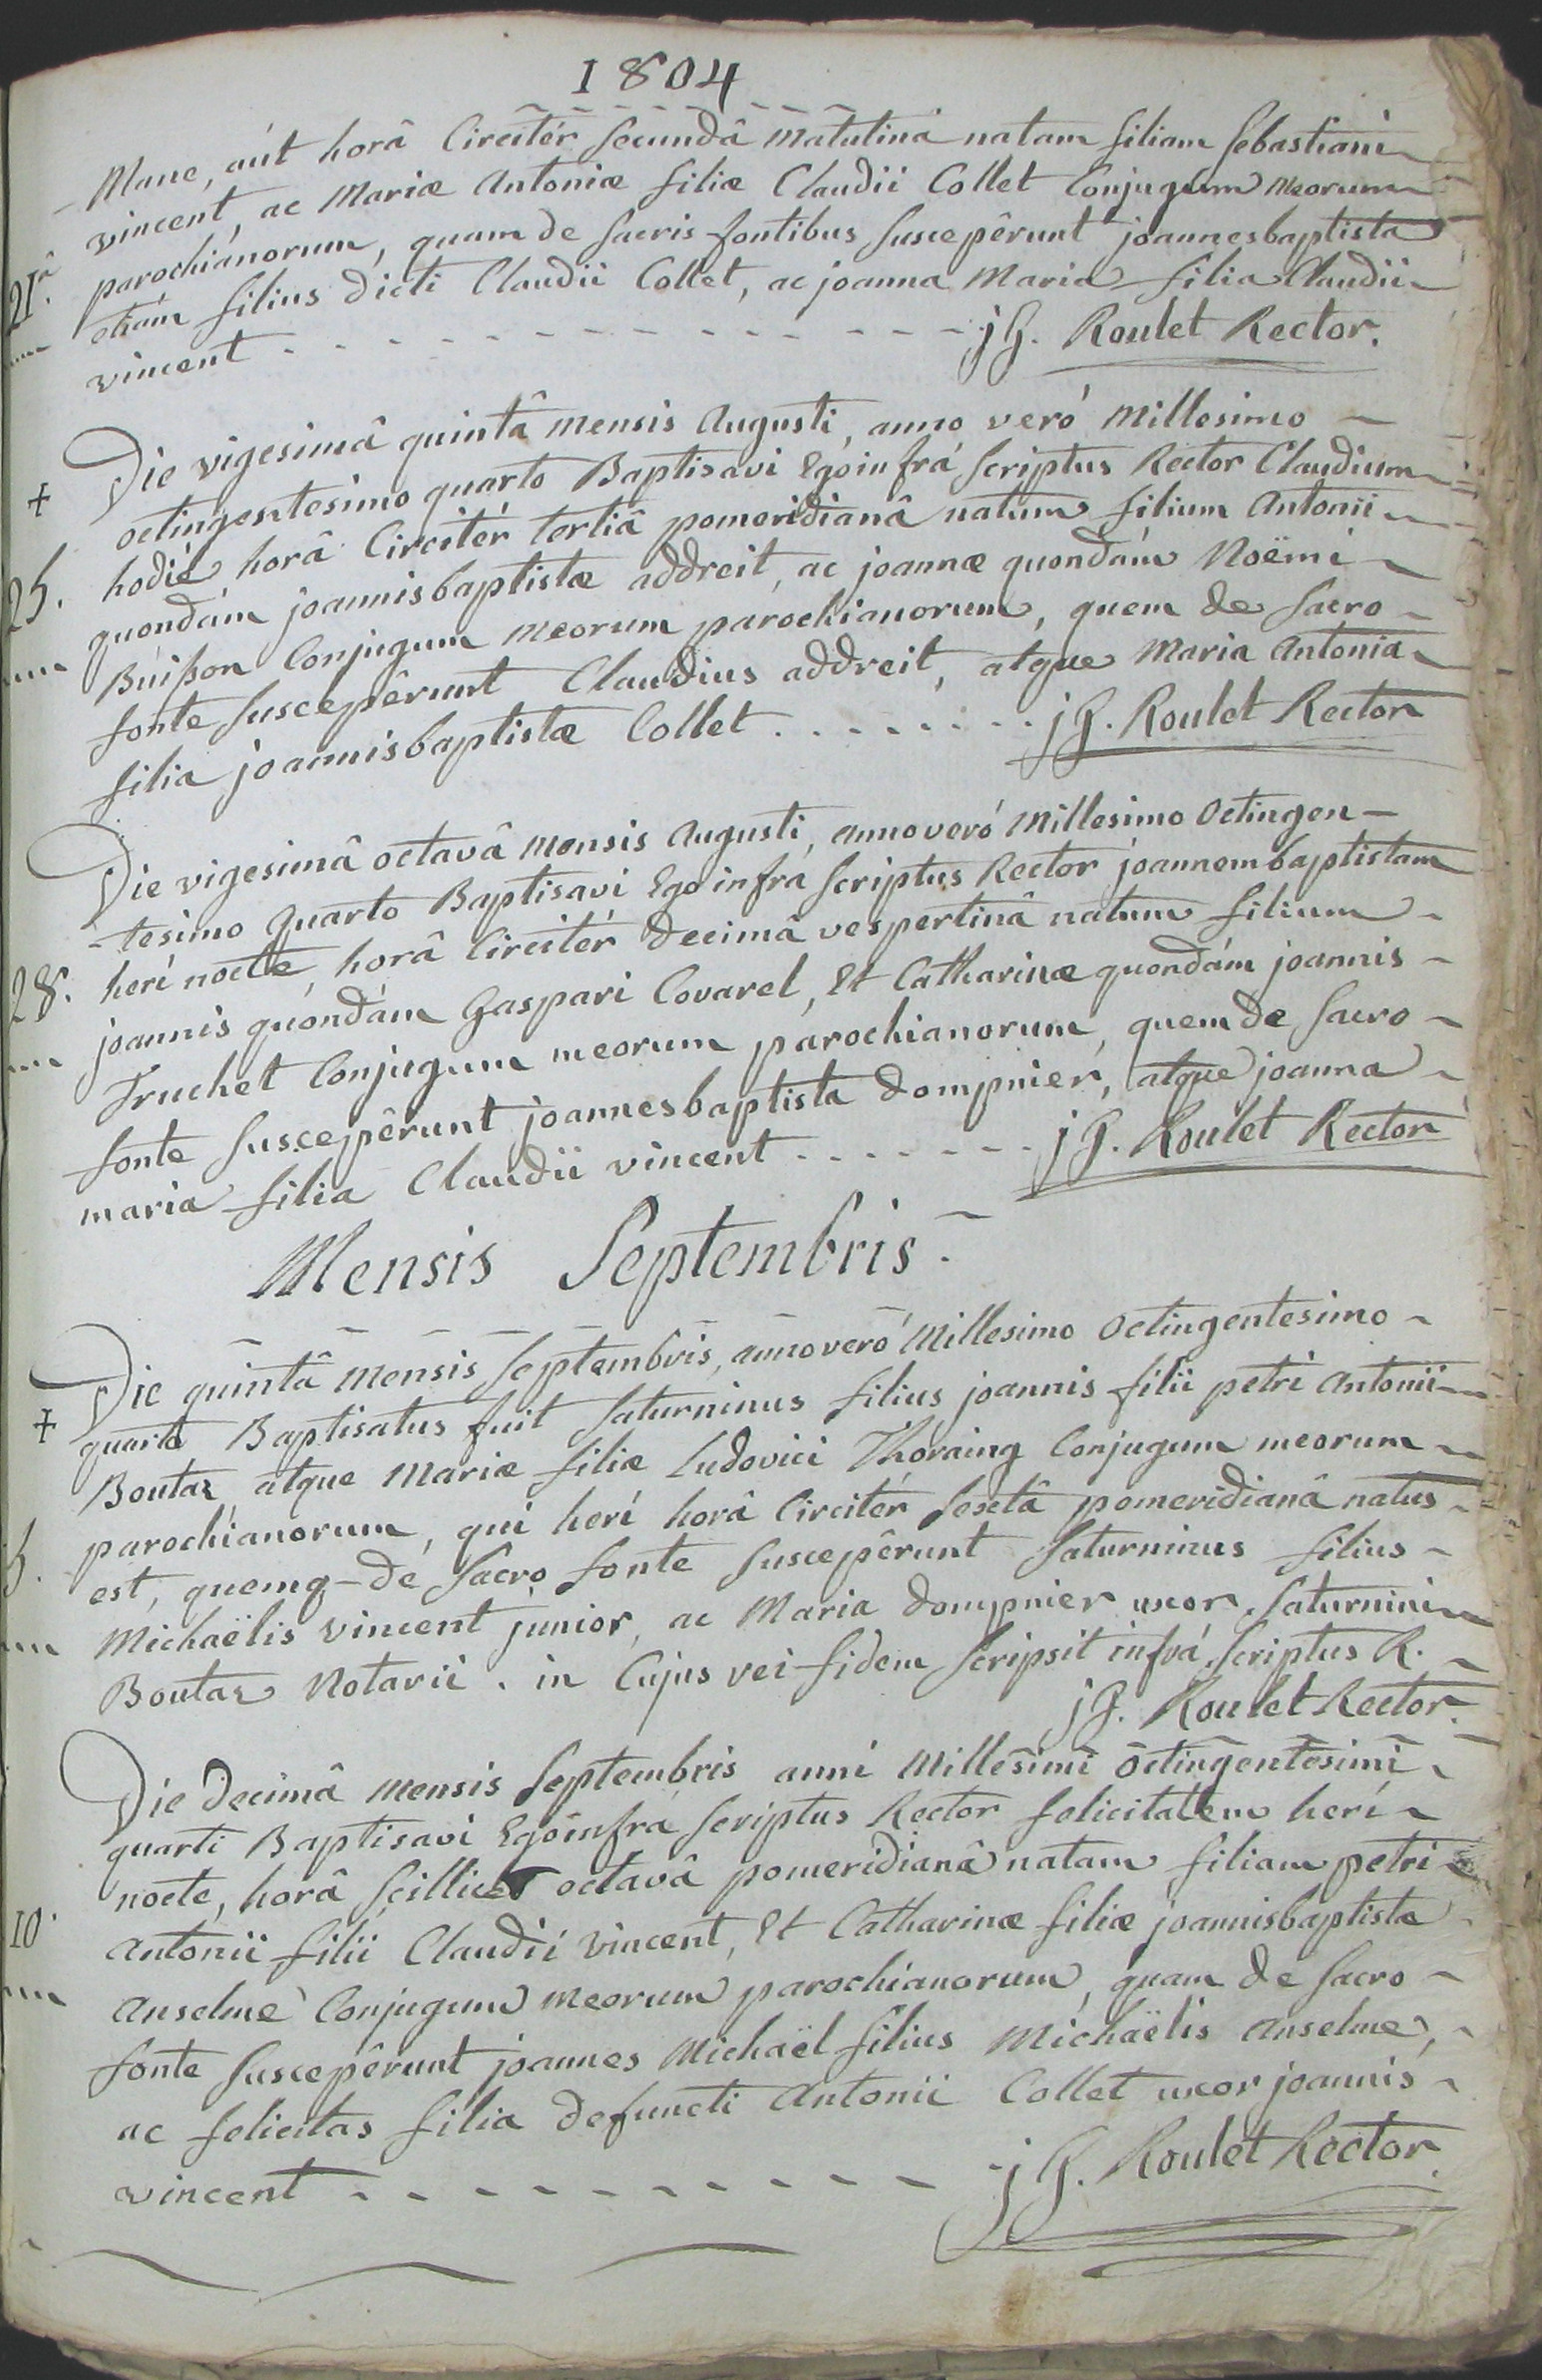 1804
Mane, aút horâ Circitér secundâ matutinâ natam filiam sebastiani
vincent, ac Mariæ Antoniæ filiæ Claudii Collet Conjugum meorum
parochianorum, quam de sacris fontibus suscepêrunt joannesbaptista
21.â etiám filius dicti Claudii Collet, ac joanna Maria filia Claudii
vincent - - - - - - - - - - - - jG. Roulet Rector.
Die vigesimâ quintâ mensis Augusti, anno veró Millesimo -
+ octingentesimo quarto Baptisavi Egó infrá scriptus Rector Claudium
25. hodié horâ Circitér tertiâ pomeridianâ natum filium Antonii
quondám joannisbaptistæ addreit, ac joannæ quondám Noëmi
Buißon Conjugum meorum parochianorum, quem de sacro -
fonte suscepêrunt Claudius addreit, atque Maria Antonia
filia joannisbaptistæ Collet . - - - - - - jG. Roulet Rector
Die vigesimâ octavâ mensis Augusti, anno veró Millesimo Octingen-
-tesimo Quarto Baptisavi Ego infrá scriptus Rector joannembaptistam
28. herí nocte, horâ Circitér decimâ vespertinâ natum filium -
joannis quóndám Gaspari Covarel, Et Catharinæ quondám joannis -
Truchet Conjugum meorum parochianorum, quem de sacro -
fonte suscepêrunt joannesbaptista dompnier, atque joanna -
maria filia Claudii vincent - - - - - - - jG. Roulet Rector
Mensis Septembris -
Die quintâ mensis septembris, anno veró Millesimo Octingentesimo -
+ quarto Baptisatus fuit saturninus filius joannis filii petri Antonii
Boutaz atque Mariæ filiæ ludovici Thoraing Conjugum meorum
5. parochianorum, qui herí horâ Circitér sextâ pomeridianâ natus -
est, quemq- de sacro fonte suscepêrunt saturninus filius -
Michaëlis vincent junior, ac Maria dompnier uxor saturnini
Boutaz Notarii . in Cujus rei fidem scripsit infrá scriptus R. -
jG. Roulet Rector.
Die decimâ mensis septembris anni Millesimi octingentesimi -
quarti Baptisavi Egó infrá scriptus Rector felicitatem herí -
nocte, horâ scillicet octavâ pomeridianâ natam filiam petri
10. Antonii filii Claudii vincent, Et Catharinæ filiæ joannisbaptistæ
Anselme Conjugum meorum parochianorum, quam de sacro -
fonte suscepêrunt joannes Michaël filius Michaëlis Anselme, -
ac felicitas filia defuncti Antonii Collet uxor joannis -
vincent - - - - - - - - - - jG. Roulet Rector